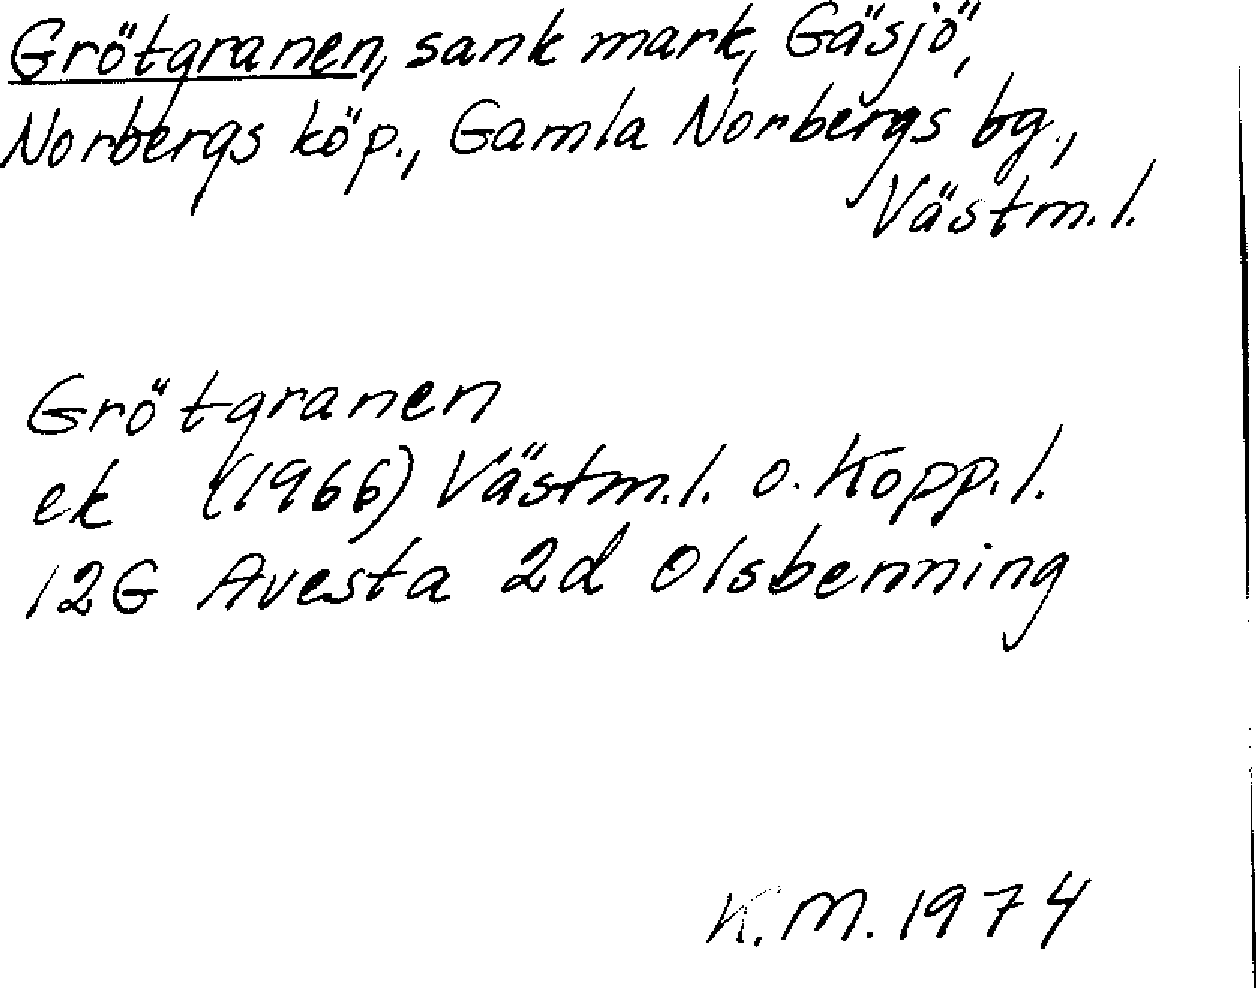 Grötgranen, sank mark, Gäsjö,
Norbergs köp., Gamla Norbergs bg.,
Västm.l.
Grötgranen
ek (1966) Västm.l. o. Kopp.l.
12G Avesta 2d Olsbenning
K.M. 1974